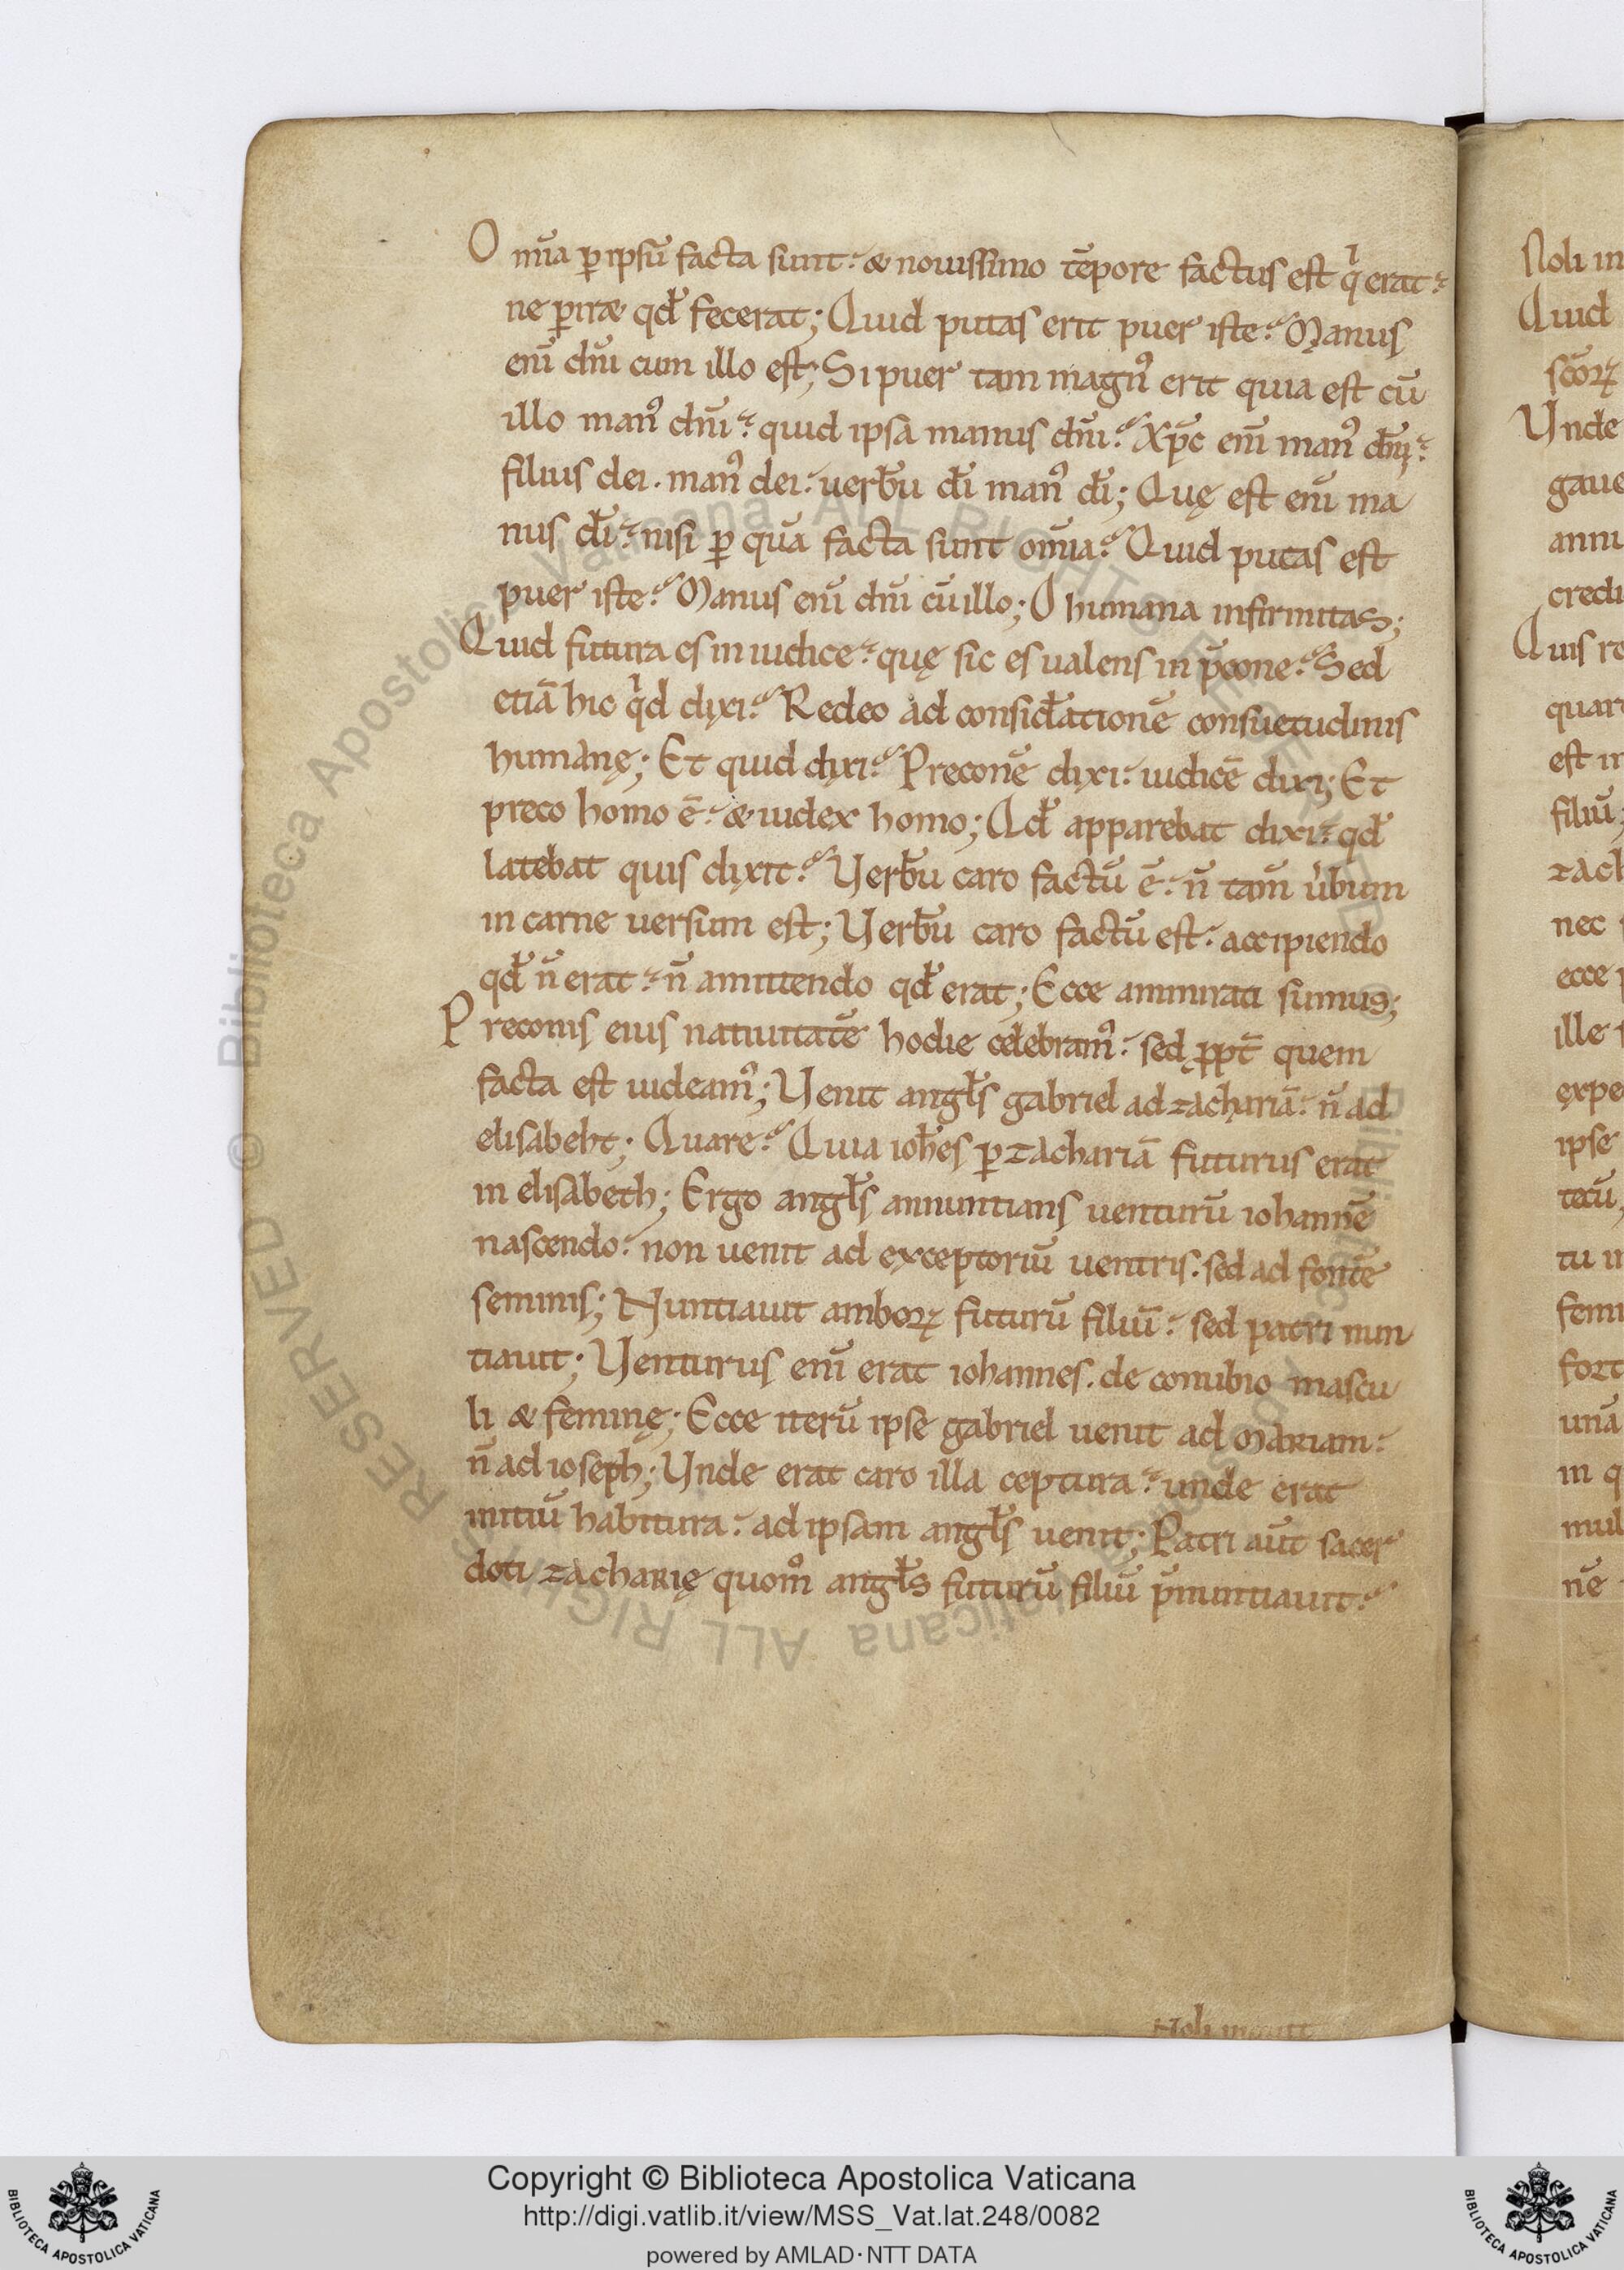 Omīa ꝑ ipsū facta sunt. & nouissimo tēpore factus est qⁱ erat.
ne ꝑiræ qđ fecerat; Quid putas erit puer iste? Manus
eni̅ dn̅i cum illo est; Si puer tam magnꝰ erit quia est cū
illo manꝰ dn̅i. quid ipsa manus dn̅i? Xp̅c eni̅ manꝰ dn̅i.
filius dei. manꝰ dei. uerƀu di̅ manꝰ di̅; Quę est eni̅ ma
nus di̅. nisi ꝑ quā facta sunt om̅ia? Quid putas est
puer iste? Manus eni̅ dn̅i cū illo; O humana infirmitas;
Quid futura es in iudice. quę sic es ualens in p̅cone? Sed
etiā hic qⁱd dixi? Redeo ad consid̅ationē consuetudinis
humanę; Et quid dixi? Preconē dixi. iudicē dixi; Et
preco homo ē. & iudex homo; Qđ apparebat dixi. qđ
latebat quis dixit? Uerƀu caro factū ē. n̅ tam̅ u̅bum
in carne uersum est; Uerƀu caro factū est. accipiendo
qđ n̅ erat. n̅ amittendo qđ erat; Ecce ammirati sumus;
Preconis eius natiuitatē hodie celebramꝰ. sed ꝓpt̅ quem
facta est uideamꝰ; Uenit angl̅s gabriel ad zachariā. n̅ ad
elisabeht; Quare? Quia ioh̅es ꝑ zachariā futurus erat
in elisabeth; Ergo angl̅s annuntians uenturū iohannē
nascendo. non uenit ad exceptoriū uentris. sed ad fontē
seminis; Nuntiauit amboꝝ futurū filiū. sed patri nun
tiauit; Uenturus eni̅ erat iohannes. de conubio mascu
li & feminę; Ecce iterū ipse gabriel uenit ad Mariam.
n̅ ad ioseph; Unde erat caro illa ceptura. unde erat
initiū habitura. ad ipsam angl̅s uenit; Patri aut̅ sacer
doti zacharię quom̊ angl̅s futurū filiū p̅nuntiauit?
Noli in
Quid
sc̅oꝝ
Unde
gaue
annu
credi
Quis re
quare
est in
filiū
zach
nec
ecce
ille
expe
ipse
tecū
tu in
femi
fort
unā
in q
mul
ne
Copyright © Biblioteca Apostolica Vaticana
http://digi.vatlib.it/view/MSS_Vat.lat.248/0082
powered by AMLAD·NTT DATA
BIBLIOTECA APOSTOLICA VATICANA
BIBLIOTECA APOSTOLICA VATICANA